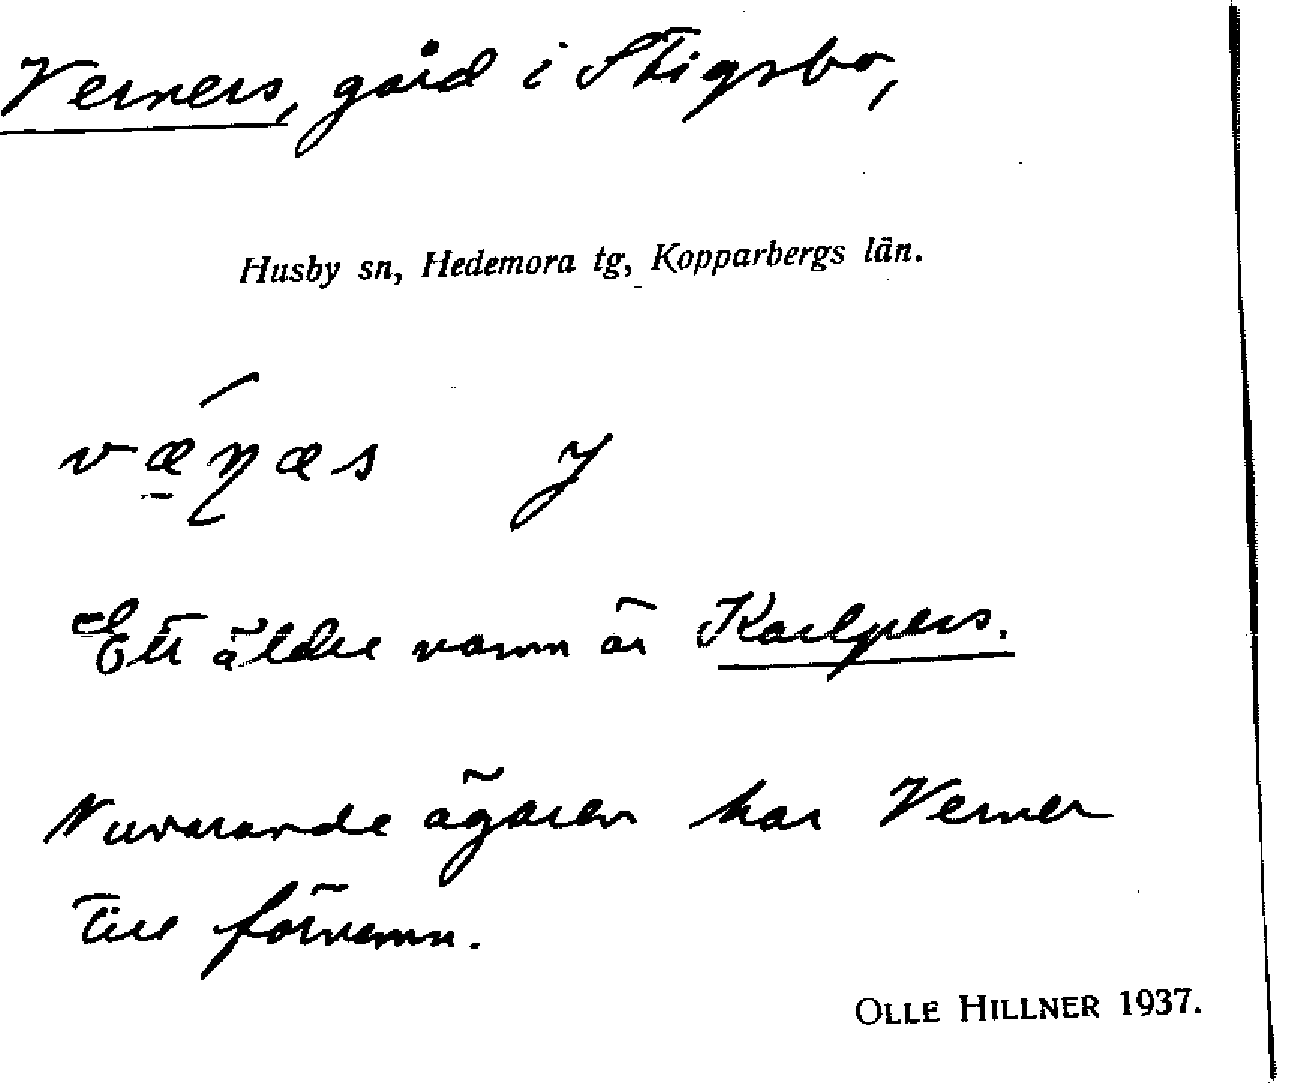 Verners, gård i Stigsbo,
Husby sn, Hedemora tg, Kopparbergs län.
Ett äldre namn är Karlpers.
Nuvarande ägaren har Verner
till förnamn.
OLLE HILLNER 1937.